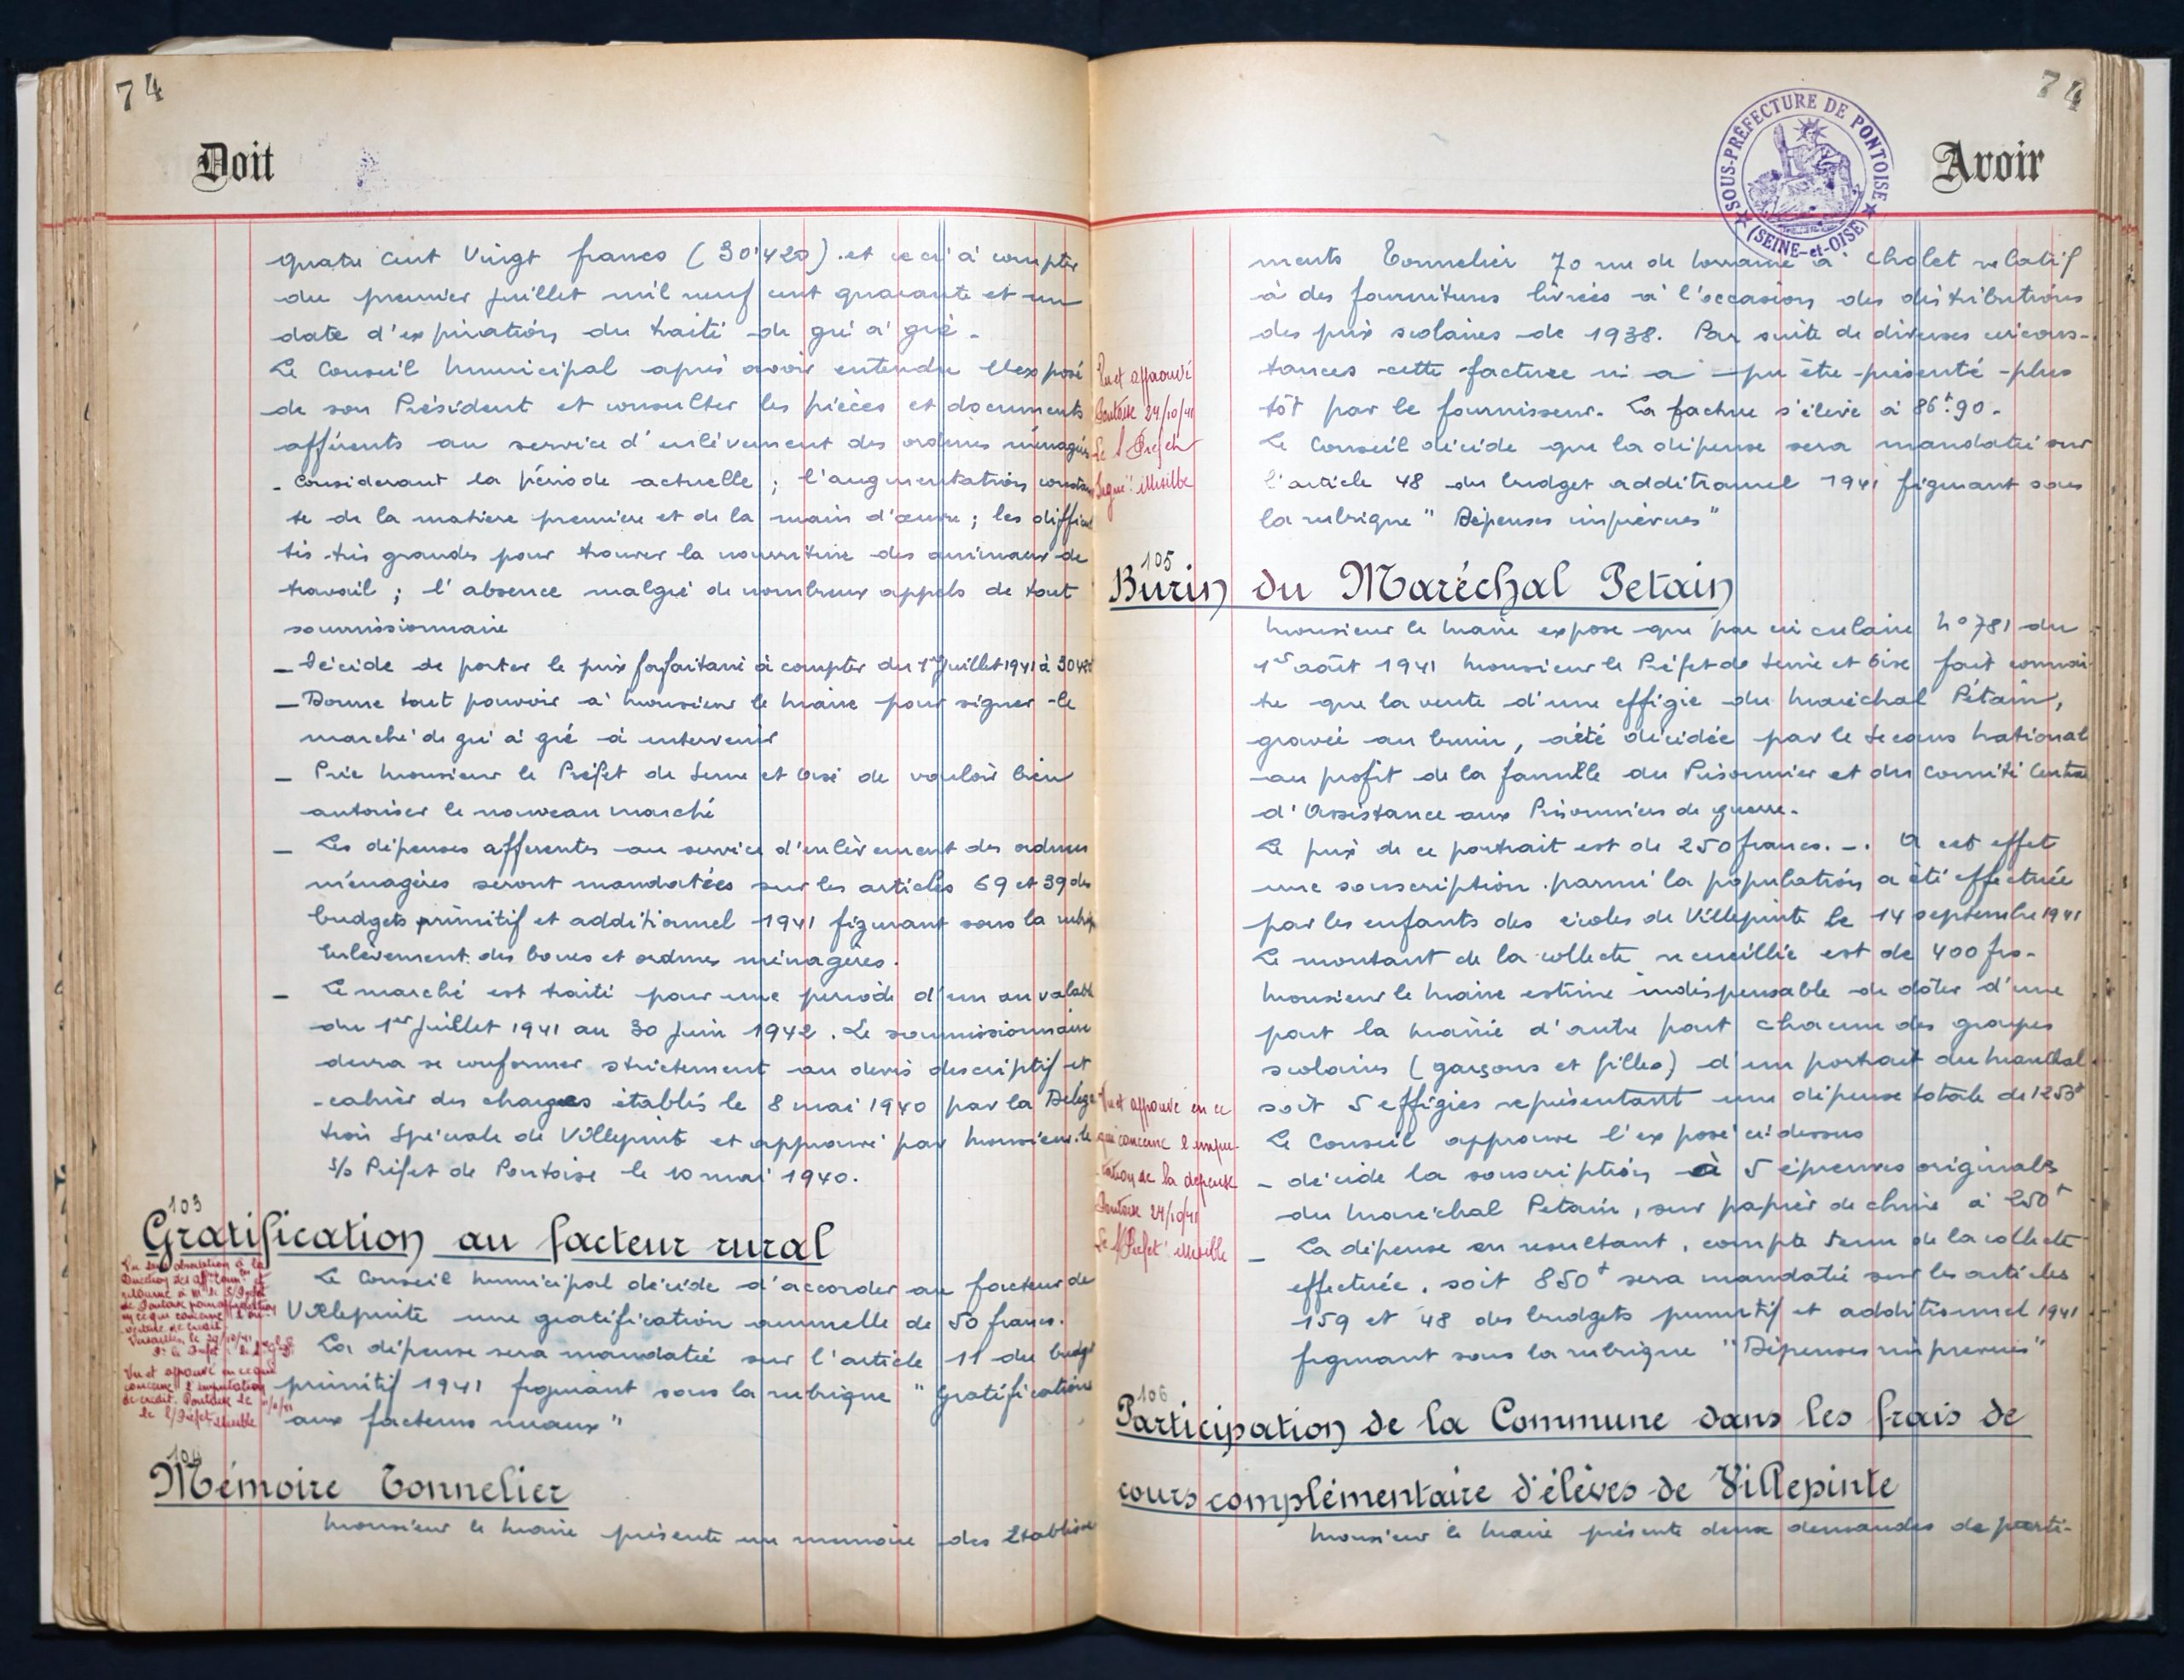 74
Doit
quatre cent Vingt francs (30'420). et ceci à compter
du premier juillet mil neuf cent quarante et un
date d'expiration du traité de gré à gré.
Le Conseil Municipal après avoir entendu l'exposé
de son Président et consulter les pièces et documents
afférents au service d'enlèvement des ordures ménagères
- Considerant la période actuelle ; l'augmentation constan
te de la matière première et de la main d'œuvre ; les difficul
tés très grandes pour trouver la nourriture des animaux de
travail ; l'absence malgré de nombreux appels de tout
soumissionnaire
- Décide de porter le prix forfaitaire à compter du 1er Juillet 1941 à 30420
- Donne tout pouvoir à Monsieur le Maire pour signer le
marché de gré à gré à intervenir
- Prie Monsieur le Préfet de Seine et Oise de vouloir bien
autoriser le nouveau marché
- Les dépenses afferentes au service d'enlèvement des ordures
ménagères seront mandatées sur les articles 69 et 39 des
budgets primitif et additionnel 1941 figurant sous la rubriq
Enlèvement des boues et ordures ménagères.
- Le marché est traité pour une période d'un an valable
du 1er Juillet 1941 au 30 Juin 1942. Le soumissionnaire
devra se conformer strictement au devis descriptif et
cahier des charges établis le 8 mai 1940 par la Déléga
tion Spéciale de Villepinte et approuvé par Monsieur le
S/ Préfet de Pontoise le 10 mai 1940.
103
Gratification au facteur rural
Vu sans observation à la
Direction des
retourné à M. le S/Préfet
de Pontoise pour approbation
en ce qui concerne l'ou-
verture de crédit.
Versailles, le 20/10/41
Vu et approuvé en ce qui
concerne l'imputation
de crédit. Pontoise le
le S/Préfet: illisible
Le Conseil Municipal décide d'accorder au facteur de
Villepinte une gratification annuelle de 50 francs.
La dépense sera mandatée sur l'article 11 du budget
primitif 1941 figurant sous la rubrique "Gratifications
aux facteurs ruraux"
104
Mémoire Tonnelier
Monsieur le Maire présente un mémoire des Etablisse
74
Avoir
SOUS-PRÉFECTURE DE PONTOISE
(SEINE-et-OISE)
ments Tonnelier 70 rue de Lorraine à Cholet relatif
à des fournitures livrées à l'occasion des distributions
des prix scolaires de 1938. Par suite de diverses circons-
tances cette facture n'a pu être présenté plus
tôt par le fournisseur. La facture s'élève à 86f.90.
Le Conseil décide que la dépense sera mandatée sur
l'article 48 du budget additionnel 1941 figurant sous
la rubrique "Dépenses imprévues"
Vu et approuvé
Pontoise 24/10/41
Le S/Préfet
Signé: illisible
105
Burin du Maréchal Petain
Monsieur le Maire expose que par circulaire N° 781 du
1er août 1941 Monsieur le Préfet de Seine et Oise fait connai-
tre que la vente d'une effigie du Maréchal Pétain,
gravée au burin, a été décidée par le Secours National
au profit de la famille du Prisonnier et du Comité Central
d'Assistance aux Prisonniers de guerre.
Le prix de ce portrait est de 250 francs.-. A cet effet
une souscription parmi la population a été effectuée
par les enfants des écoles de Villepinte le 14 septembre 1941
Le montant de la collecte recueillie est de 400 frs.
Monsieur le Maire estime indispensable de dôter d'une
part la Mairie d'autre part chacune des groupes
scolaires (garçons et filles) d'un portrait du Maréchal
soit 5 effigies représentant une dépense totale de 1250f
Le Conseil approuve l'exposé ci-dessus
- décide la souscription à 5 épreuves originales
du Maréchal Petain, sur papier de chine à 250f
- La dépense en resultant, compte tenu de la collecte
effectuée, soit 850f sera mandatée sur les articles
159 et 48 des budgets primitif et additionnel 1941
figurant sous la rubrique "Dépenses imprevues"
Vu et approuvé en ce
qui concerne l'impu-
tation de la dépense
Pontoise 24/10/41
Le S/Préfet: illisible
106
Participation de la Commune dans les frais de
cours complémentaire d'élèves de Villepinte
Monsieur le Maire présente deux demandes de parti-